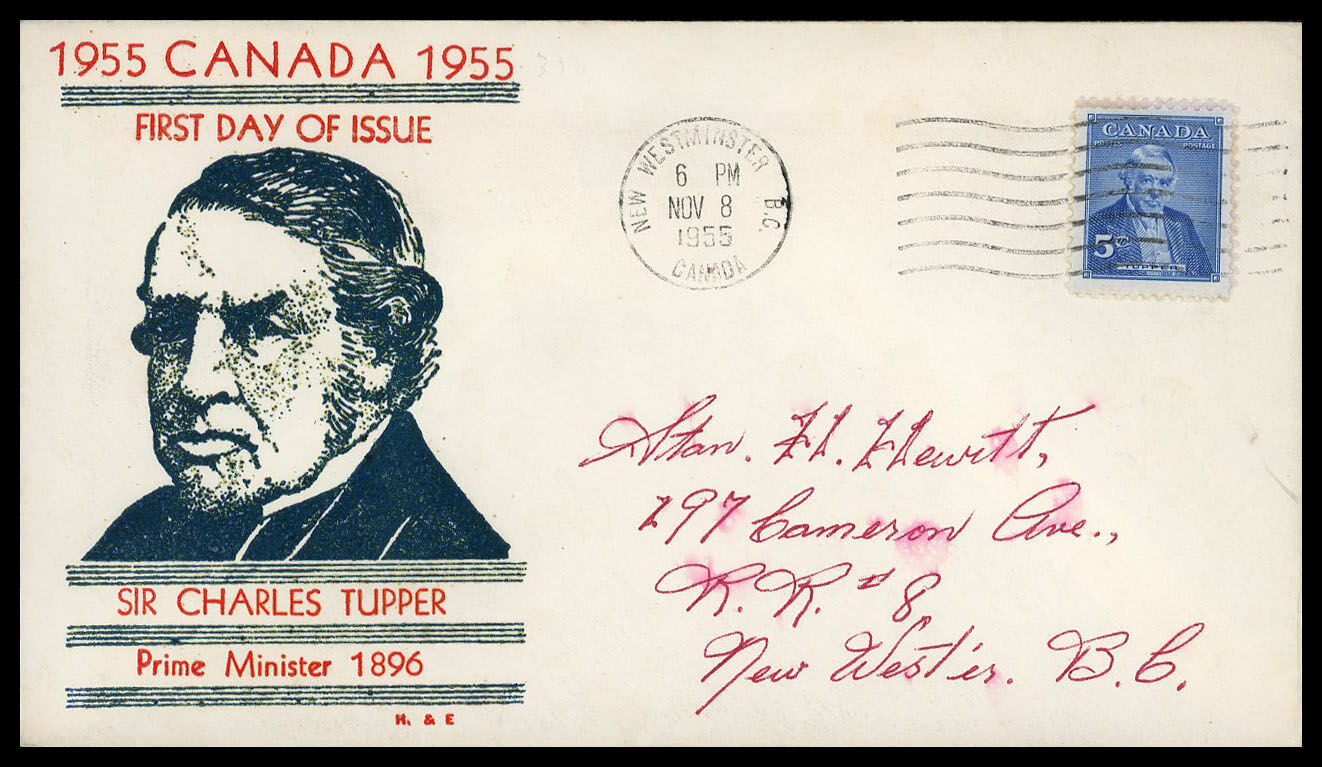 1955 CANADA 1955
FIRST DAY OF ISSUE
SIR CHARLES TUPPER
Prime Minister 1896
H. & E
NEW WESTMINSTER B.C.
6 PM
NOV 8
1955
CANADA
CANADA
POSTAGE
5
TUPPER
Stan. H. Hewitt,
297 Cameron Ave.,
R.R. # 8,
New West'er. B.C.